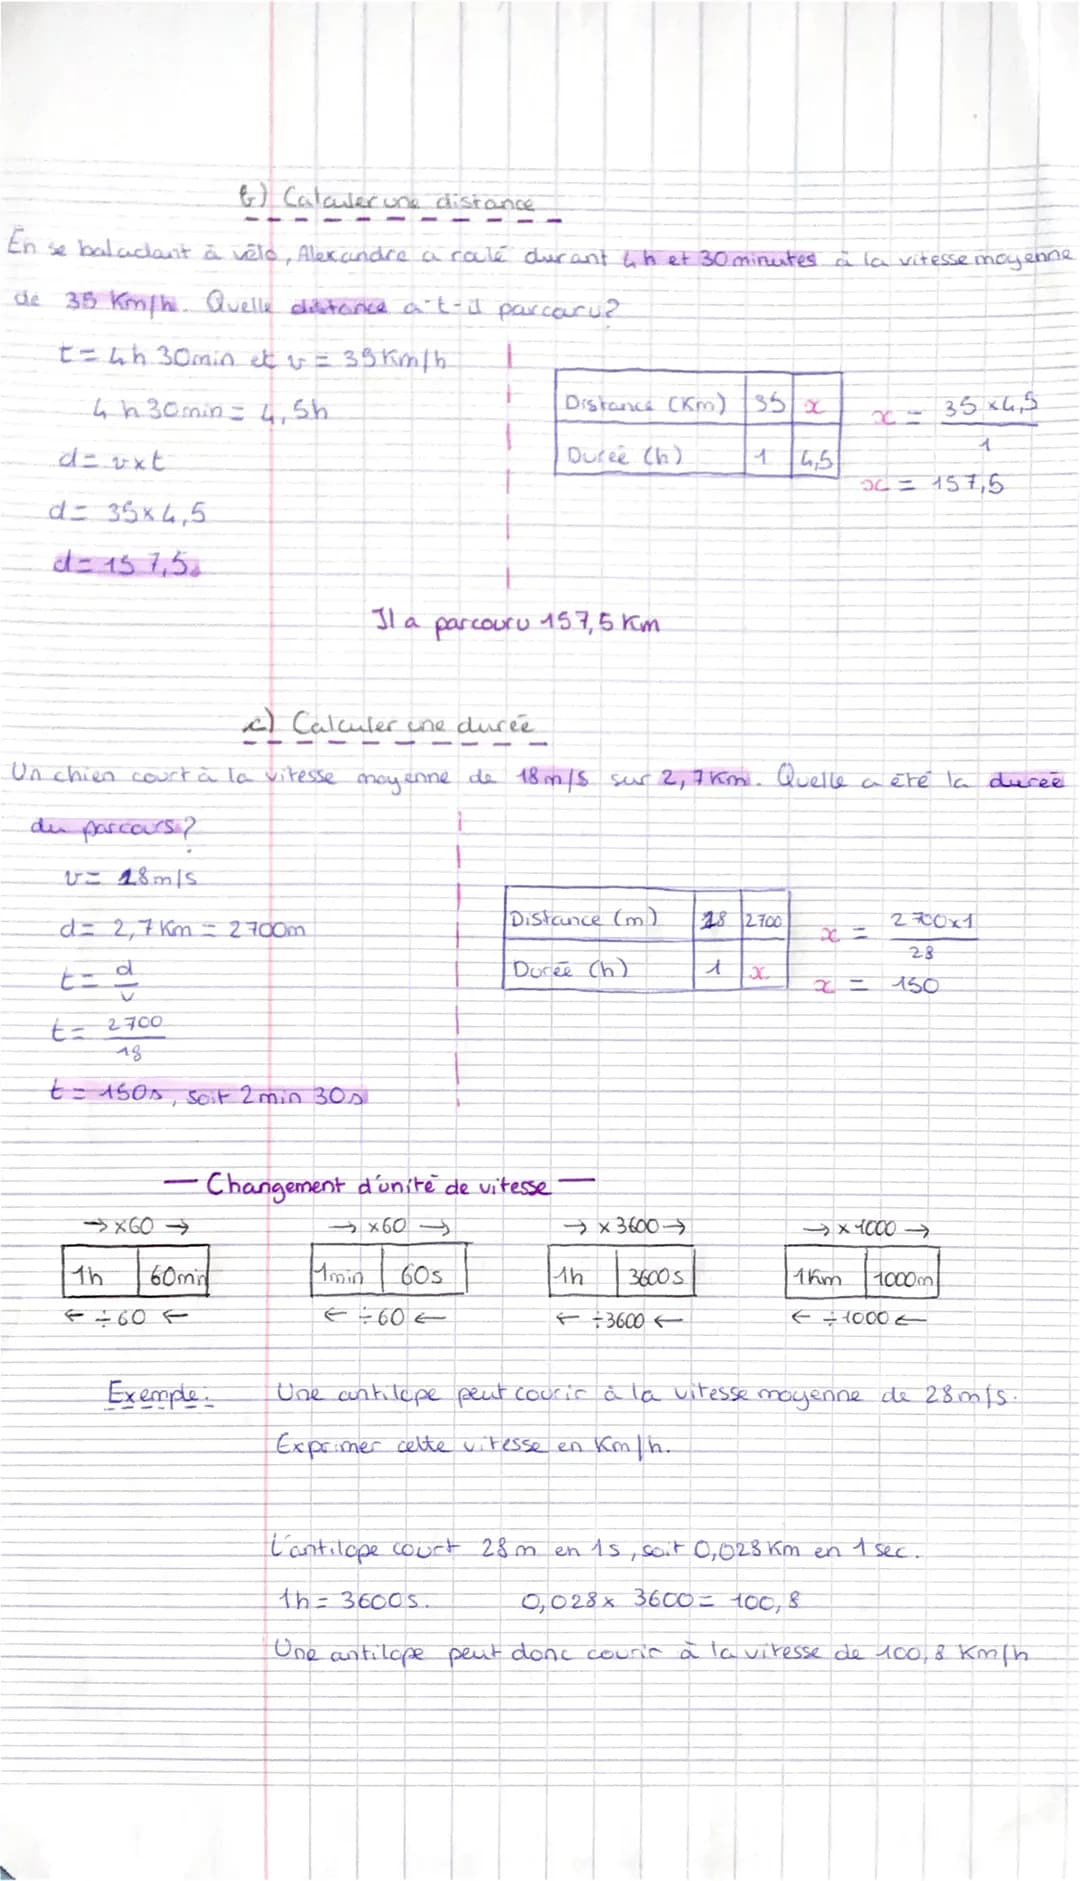 b) Calculer une distance
En se baladant à vélo, Alexandre a roulé durant 4h et 30 minutes à la vitesse moyenne
de 35 Km/h. Quelle distance a-t-il parcouru?
t = 4h 30min et v = 35 Km/h
4h30min = 4,5h
d = v×t
d = 35×4,5
d = 157,5
Distance (Km) 35 x
Durée (h) 1 4,5
x = 35×4,5 / 1
x = 157,5
Il a parcouru 157,5 Km
c) Calculer une durée
Un chien court à la vitesse moyenne de 18m/s sur 2,7 Km. Quelle a été la durée
du parcours?
v = 18m/s
d = 2,7 Km = 2700m
t = d/v
t = 2700/18
t = 150s, soit 2min 30s
Distance (m) 18 2700
Durée (h) 1 x
x = 2700×1 / 28
x = 150
— Changement d'unité de vitesse —
→ ×60 → → ×60 → → ×3600 → → ×1000 →
1h 60min 1min 60s 1h 3600s 1Km 1000m
← ÷60 ← ← ÷60 ← ← ÷3600 ← ← ÷1000 ←
Exemple: Une antilope peut courir à la vitesse moyenne de 28m/s.
Exprimer cette vitesse en Km/h.
L'antilope court 28m en 1s, soit 0,028 Km en 1 sec.
1h = 3600s. 0,028 × 3600 = 100,8
Une antilope peut donc courir à la vitesse de 100,8 Km/h